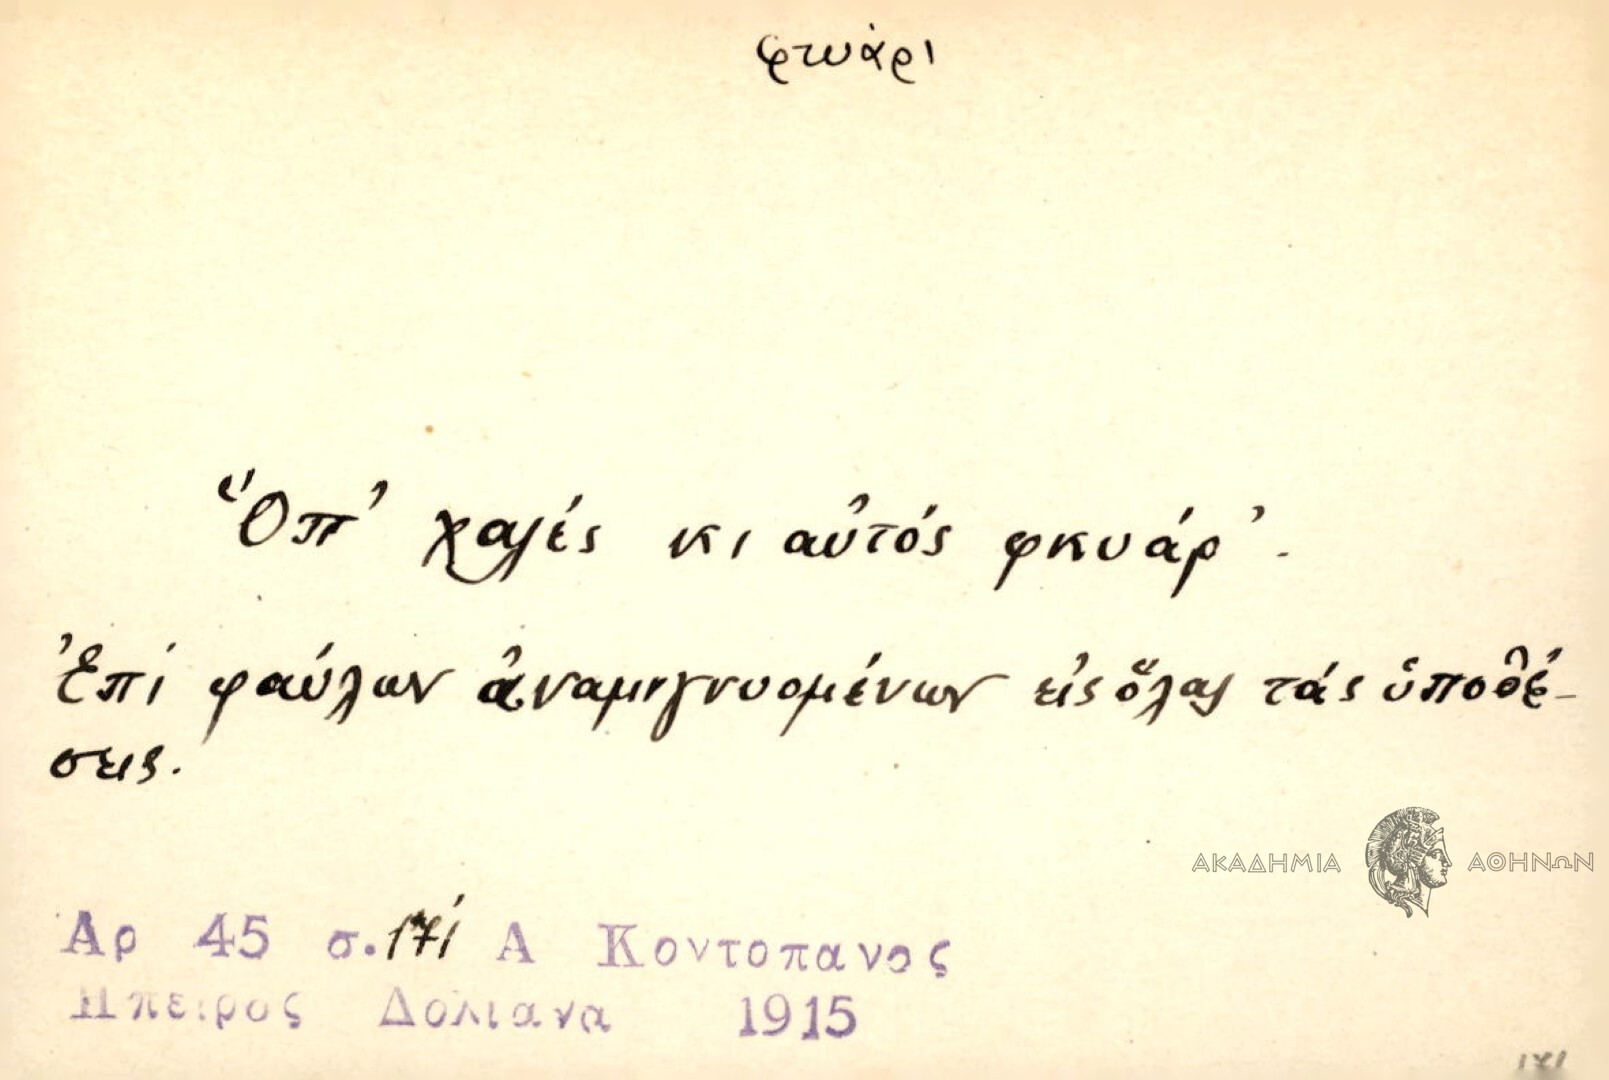 φτυάρι
Ὅπ' χαλές κι αὐτός φκυάρ'.
Ἐπί φαύλων ἀναμιγνυομένων εἰς ὅλας τάς ὑποθέ-
σεις.
ΑΚΑΔΗΜΙΑ ΑΘΗΝΩΝ
Αρ 45 σ. 171 Α Κοντοπανος
Ηπειρος Δολιανα 1915
171